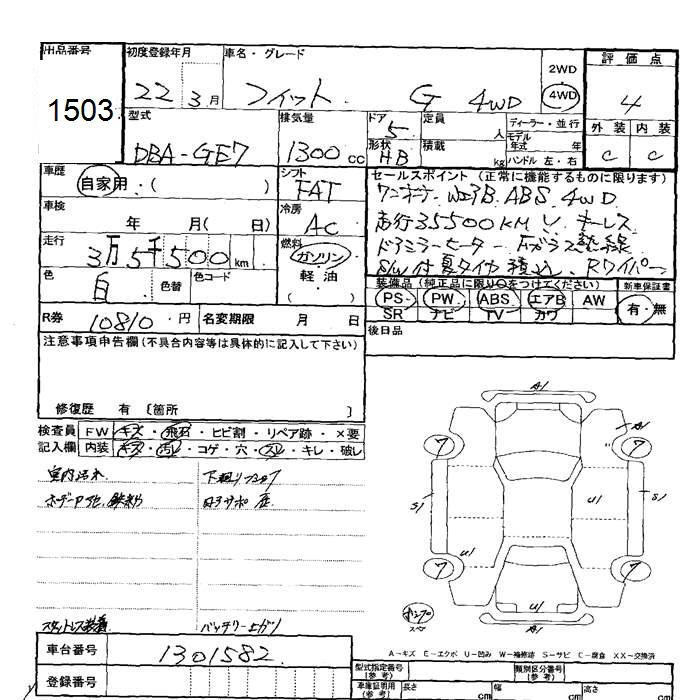 出品番号 初度登録年月 車名・グレード 2WD 評価点
1503 22 3月 フィット G 4WD 4WD 4
型式 排気量 ドア 定員 ディーラー・並行 外装 内装
DBA-GE7 1300cc 5 人 モデル年式 年 C C
形状 積載
HB kg ハンドル 左・右
車歴 シフト セールスポイント(正常に機能するものに限ります)
自家用・( ) FAT ワンオーナー WエアB ABS 4WD
車検 冷房 走行35500KM キーレス
年 月( 日) AC ドアミラーヒーター Fガラス熱線
走行 燃料 S/W付夏タイヤ積込 Rワイパー
3万5千500km ガソリン
色 色替 色コード 軽・油
白 ( )
装備品(純正品に限り○をつけてください) 新車保証書
PS PW ABS エアB AW 有・無
SR ナビ TV カワ
R券 10810・円 名変期限 月 日 後日品
注意事項申告欄(不具合内容等は具体的に記入して下さい)
修復歴 有 〔箇所 〕
検査員 FW キズ・飛石・ヒビ割・リペア跡・×要
記入欄 内装 キズ・汚レ・コゲ・穴・スレ・キレ・破レ
室内汚れ 下廻り
A1
A1
7 7
S/ U/ S/
U/
7 7
U/
A1
バッテリー上ガリ
A-キズ E-エクボ U-凹み W-補修跡 S-サビ C-腐食 XX-交換済
車台番号 1301582
登録番号
型式指定番号(参考) 類別区分番号(参考)
車庫証明用(参考) 長さ cm 幅 cm 高さ cm